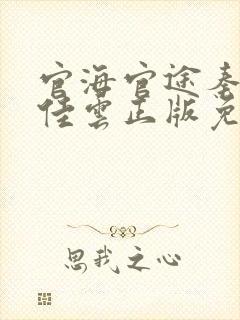 官海官途秦
佳雲正版免
思我之心